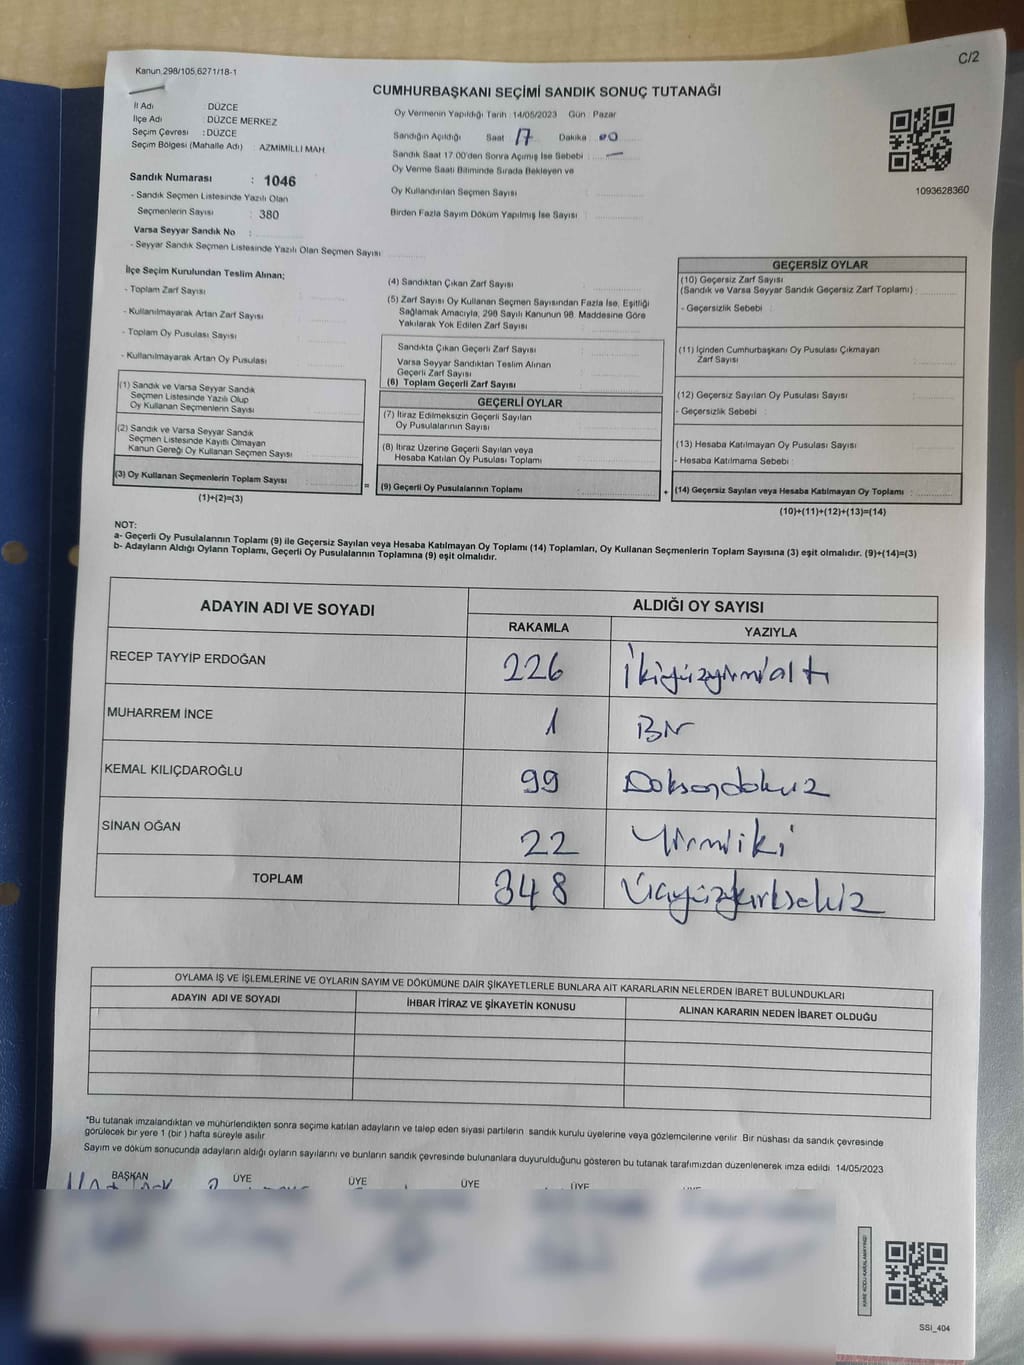 C/2
Kanun.298/105.6271/18-1
CUMHURBAŞKANI SEÇİMİ SANDIK SONUÇ TUTANAĞI
İl Adı : DÜZCE
İlçe Adı : DÜZCE MERKEZ
Seçim Çevresi : DÜZCE
Seçim Bölgesi (Mahalle Adı) : AZMİMİLLİ MAH.
Sandık Numarası : 1046
- Sandık Seçmen Listesinde Yazılı Olan
Seçmenlerin Sayısı : 380
Varsa Seyyar Sandık No :
- Seyyar Sandık Seçmen Listesinde Yazılı Olan Seçmen Sayısı
Oy Vermenin Yapıldığı Tarih 14/05/2023 Gün : Pazar
Sandığın Açıldığı Saat 17 Dakika : 00
Sandık Saat 17.00'den Sonra Açımış İse Sebebi : —
Oy Verme Saati Bitiminde Sırada Bekleyen ve
Oy Kullandırılan Seçmen Sayısı
Birden Fazla Sayım Döküm Yapılmış İse Sayısı
1093628360
İlçe Seçim Kurulundan Teslim Alınan;
- Toplam Zarf Sayısı
- Kullanılmayarak Artan Zarf Sayısı
- Toplam Oy Pusulası Sayısı
- Kullanılmayarak Artan Oy Pusulası
(1) Sandık ve Varsa Seyyar Sandık
Seçmen Listesinde Yazılı Olup
Oy Kullanan Seçmenlerin Sayısı
(2) Sandık ve Varsa Seyyar Sandık
Seçmen Listesinde Kayıtlı Olmayan
Kanun Gereği Oy Kullanan Seçmen Sayısı
(3) Oy Kullanan Seçmenlerin Toplam Sayısı :
(1)+(2)=(3)
(4) Sandıktan Çıkan Zarf Sayısı
(5) Zarf Sayısı Oy Kullanan Seçmen Sayısından Fazla İse, Eşitliği
Sağlamak Amacıyla, 298 Sayılı Kanunun 98. Maddesine Göre
Yakılarak Yok Edilen Zarf Sayısı
Sandıkta Çıkan Geçerli Zarf Sayısı
Varsa Seyyar Sandıktan Teslim Alınan
Geçerli Zarf Sayısı
(6) Toplam Geçerli Zarf Sayısı
GEÇERLİ OYLAR
(7) İtiraz Edilmeksizin Geçerli Sayılan
Oy Pusulalarının Sayısı
(8) İtiraz Üzerine Geçerli Sayılan veya
Hesaba Katılan Oy Pusulası Toplamı
= (9) Geçerli Oy Pusulalarının Toplamı :
GEÇERSİZ OYLAR
(10) Geçersiz Zarf Sayısı
(Sandık ve Varsa Seyyar Sandık Geçersiz Zarf Toplamı) :
- Geçersizlik Sebebi :
(11) İçinden Cumhurbaşkanı Oy Pusulası Çıkmayan
Zarf Sayısı
(12) Geçersiz Sayılan Oy Pusulası Sayısı
- Geçersizlik Sebebi :
(13) Hesaba Katılmayan Oy Pusulası Sayısı
- Hesaba Katılmama Sebebi :
+ (14) Geçersiz Sayılan veya Hesaba Katılmayan Oy Toplamı :
(10)+(11)+(12)+(13)=(14)
NOT:
a- Geçerli Oy Pusulalarının Toplamı (9) ile Geçersiz Sayılan veya Hesaba Katılmayan Oy Toplamı (14) Toplamları, Oy Kullanan Seçmenlerin Toplam Sayısına (3) eşit olmalıdır. (9)+(14)=(3)
b- Adayların Aldığı Oyların Toplamı, Geçerli Oy Pusulalarının Toplamına (9) eşit olmalıdır.
ADAYIN ADI VE SOYADI ALDIĞI OY SAYISI
RAKAMLA YAZIYLA
RECEP TAYYİP ERDOĞAN 226 İkiyüzyirmialtı
MUHARREM İNCE 1 Bir
KEMAL KILIÇDAROĞLU 99 Doksandokuz
SİNAN OĞAN 22 Yirmiiki
TOPLAM 348 Üçyüzkırksekiz
OYLAMA İŞ VE İŞLEMLERİNE VE OYLARIN SAYIM VE DÖKÜMÜNE DAİR ŞİKAYETLERLE BUNLARA AİT KARARLARIN NELERDEN İBARET BULUNDUKLARI
ADAYIN ADI VE SOYADI İHBAR İTİRAZ VE ŞİKAYETİN KONUSU ALINAN KARARIN NEDEN İBARET OLDUĞU
*Bu tutanak imzalandıktan ve mühürlendikten sonra seçime katılan adayların ve talep eden siyasi partilerin sandık kurulu üyelerine veya gözlemcilerine verilir. Bir nüshası da sandık çevresinde
görülecek bir yere 1 (bir ) hafta süreyle asılır.
Sayım ve döküm sonucunda adayların aldığı oyların sayılarını ve bunların sandık çevresinde bulunanlara duyurulduğunu gösteren bu tutanak tarafımızdan düzenlenerek imza edildi. 14/05/2023
BAŞKAN ÜYE ÜYE ÜYE ÜYE
KARE KODU KARALAMAYINIZ!
SSİ_404